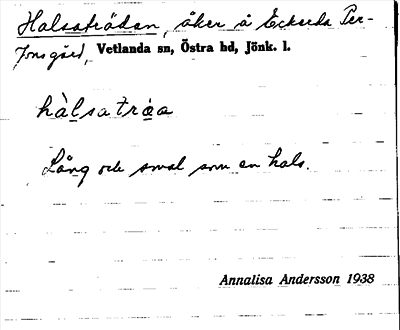 Halsaträdan, åker å Eckerda Per-
Jonsgård, Vetlanda sn, Östra hd, Jönk. l.
hàlsatrạ̊a
Lång och smal som en hals.
Annalisa Andersson 1938